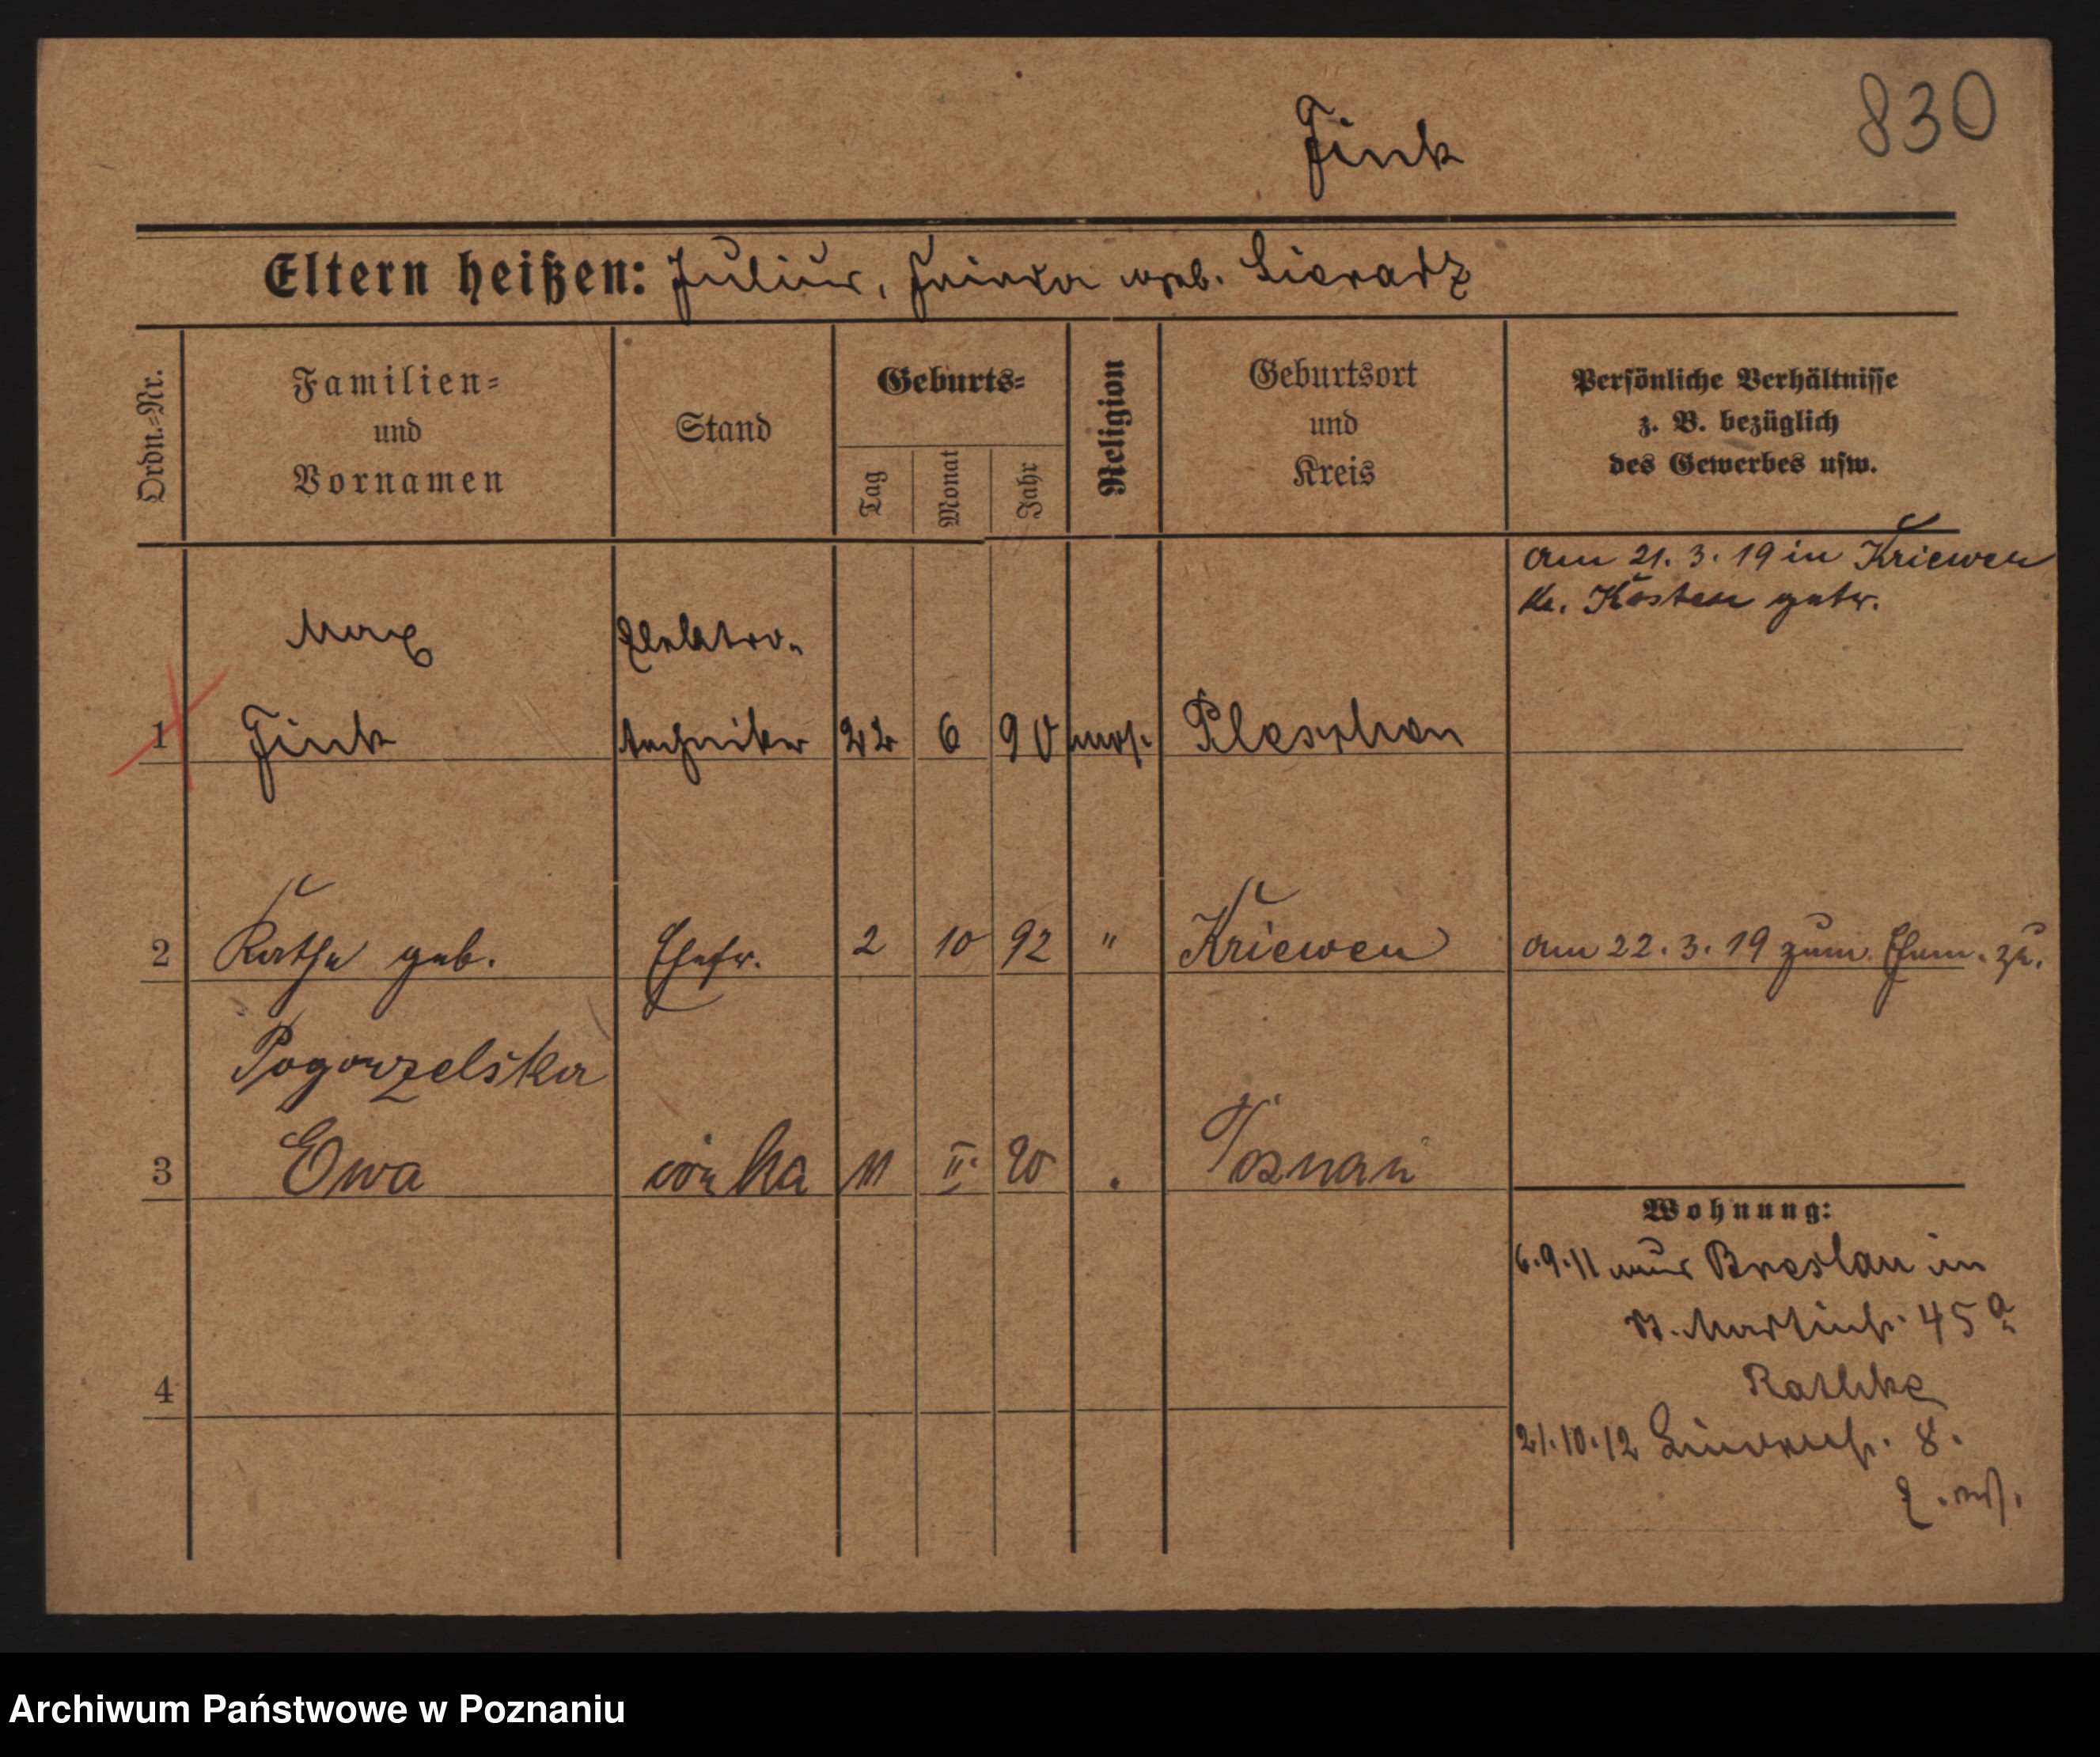 830
Fink
Eltern heißen: Julius, Frieda geb. Sieradz
Ordn.=Nr.
Familien=
und
Vornamen
Stand
Geburts=
Tag
Monat
Jahr
Religion
Geburtsort
und
Kreis
Persönliche Verhältnisse
z. B. bezüglich
des Gewerbes usw.
am 21. 3. 19 in Kriewen
Kr. Kosten getr.
Max Elektro-
1 Fink techniker 22 6 90 mos. Pleschen
2 Käthe geb. Ehefr. 2 10 92 " Kriewen am 22. 3. 19 zum Ehem. zu.
Pogorzelska
3 Ewa córka 11 II. 20 Poznań
Wohnung:
6.9.11 aus Breslau in
St. Martinstr. 45a
Rathke
4
21.10.12 Lindenstr. 8.